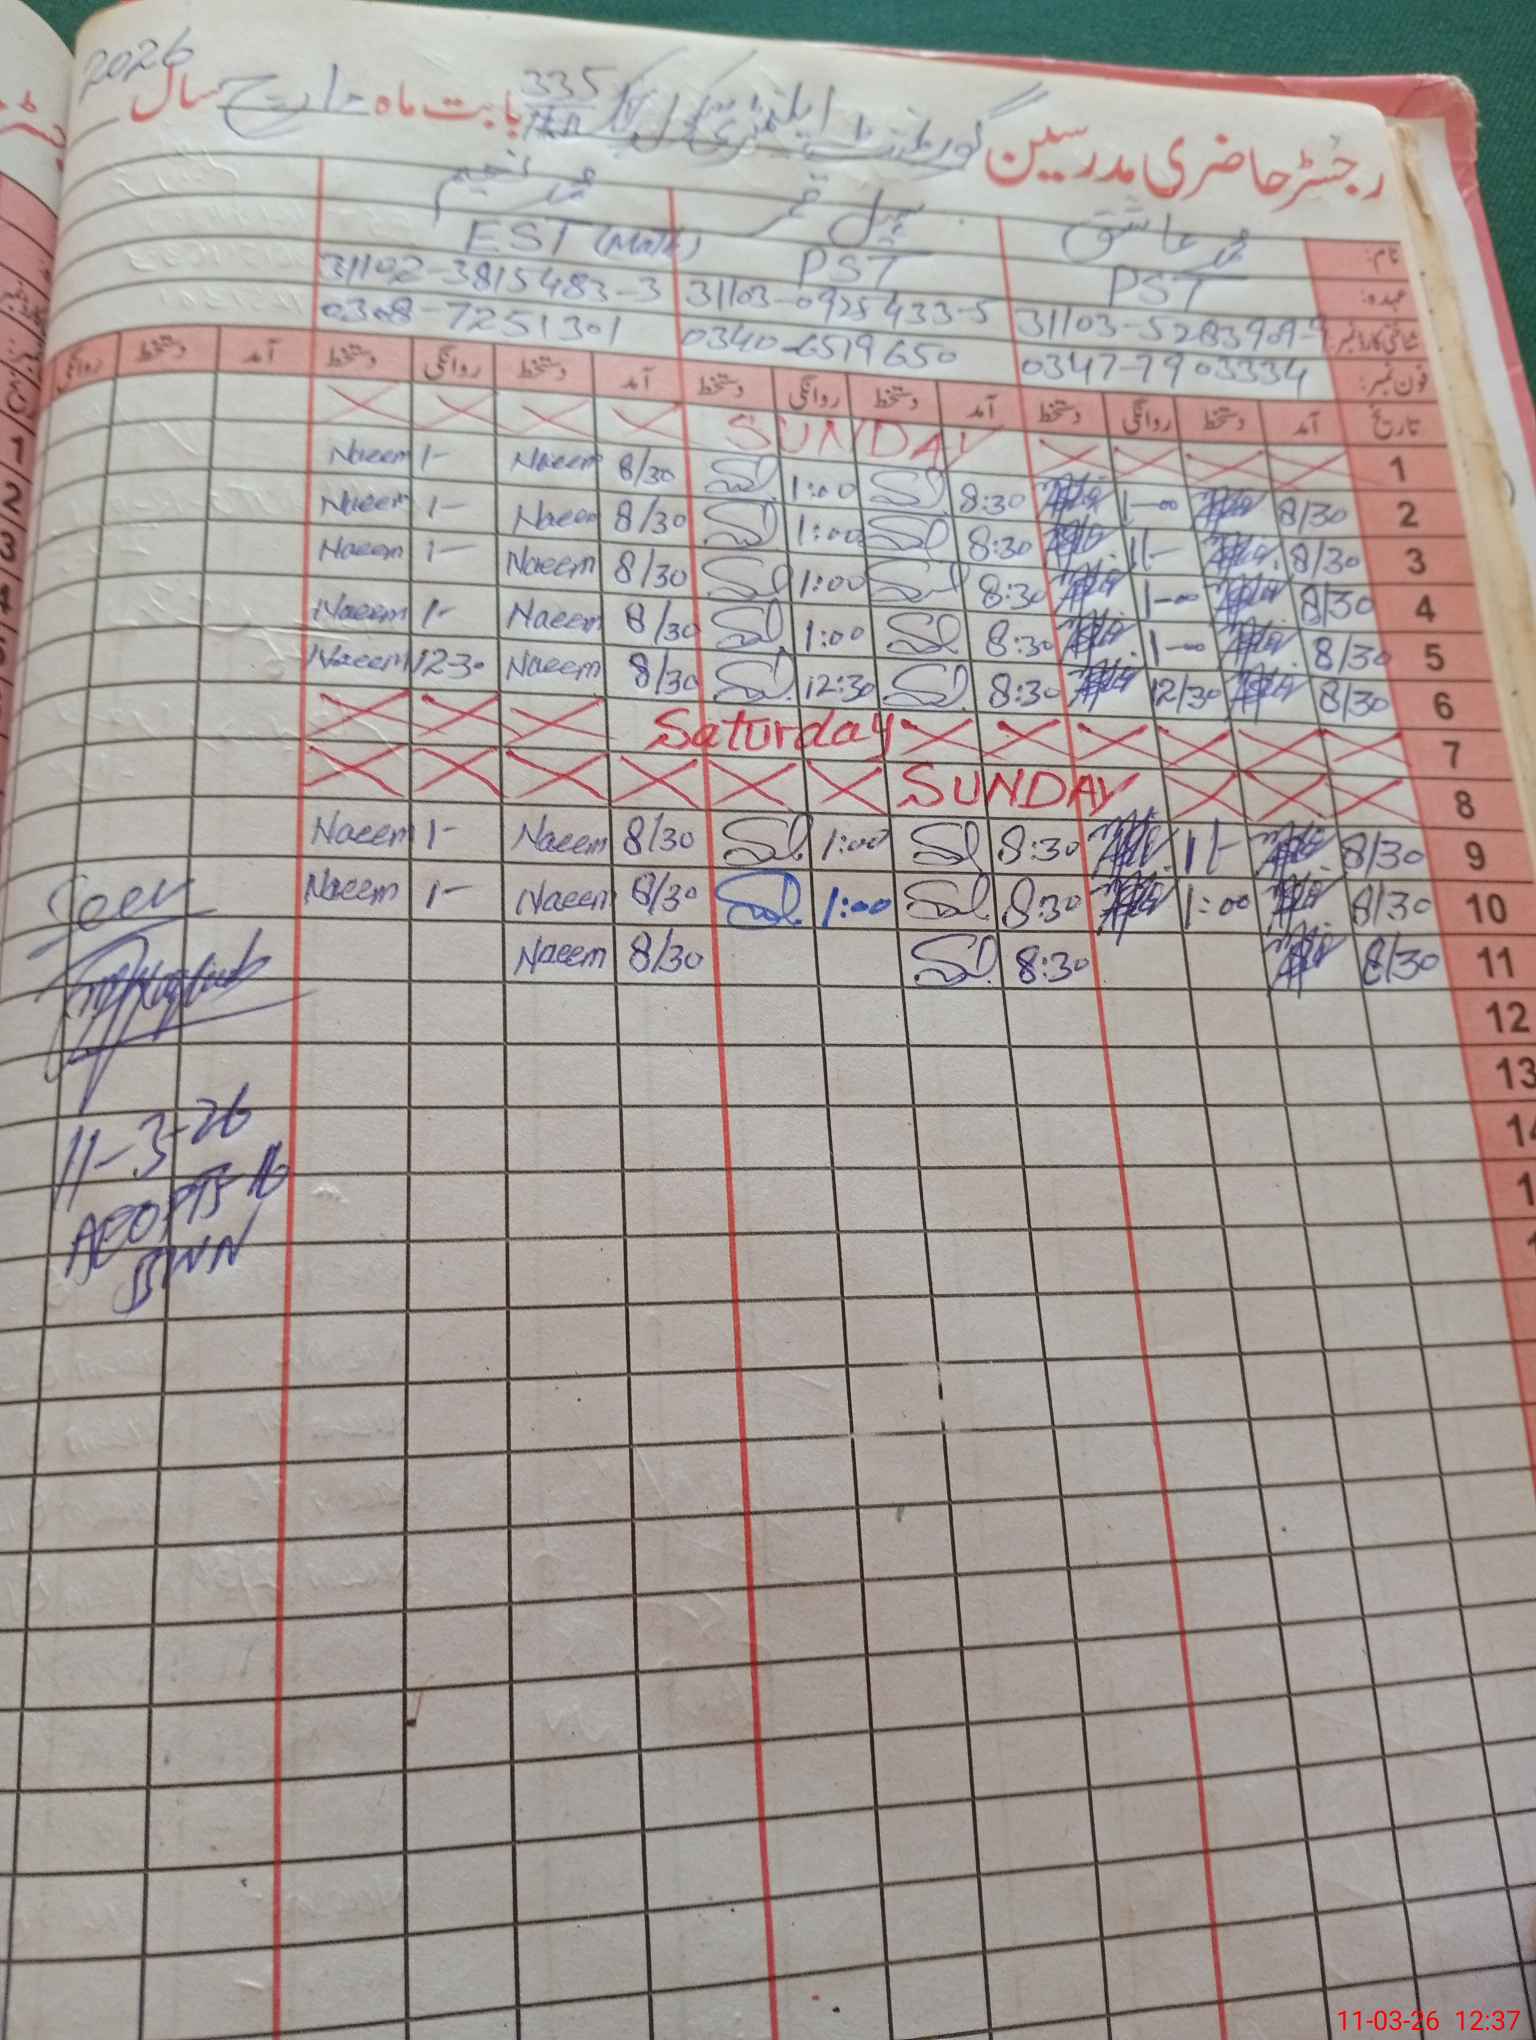 رجسٹر حاضری مدرسین گورنمنٹ ایلیمنٹری سکول 335 بابت ماہ مارچ سال 2026
نام: محمد عاشق محمد نعیم
عہدہ: PST PST EST (Math)
شناختی کارڈ نمبر 31103-0925433-5 31102-3815483-3
فون نمبر: 0347-7903334 0340-6519650 0308-7251301
تاریخ آمد دستخط روانگی دستخط آمد دستخط روانگی دستخط آمد دستخط روانگی دستخط آمد دستخط روانگی
1 SUNDAY
2 8/30 1-00 8:30 1:00 8/30 Naeem 1- Naeem
3 8/30 1/- 8:30 1:00 8/30 Naeem 1- Naeem
4 8/30 1-00 8:30 1:00 8/30 Naeem 1- Naeem
5 8/30 1-00 8:30 1:00 8/30 Naeem 1- Naeem
6 8/30 12/30 8:30 12:30 8/30 Naeem 12 30 Naeem
7 Saturday
8 SUNDAY
9 8/30 1/- 8:30 1:00 8/30 Naeem 1- Naeem
10 8/30 1:00 8:30 1:00 8/30 Naeem 1- Naeem
11 8/30 8:30 8/30 Naeem
12
13
Seen
11-3-26
AEO
BWN
11-03-26 12:37